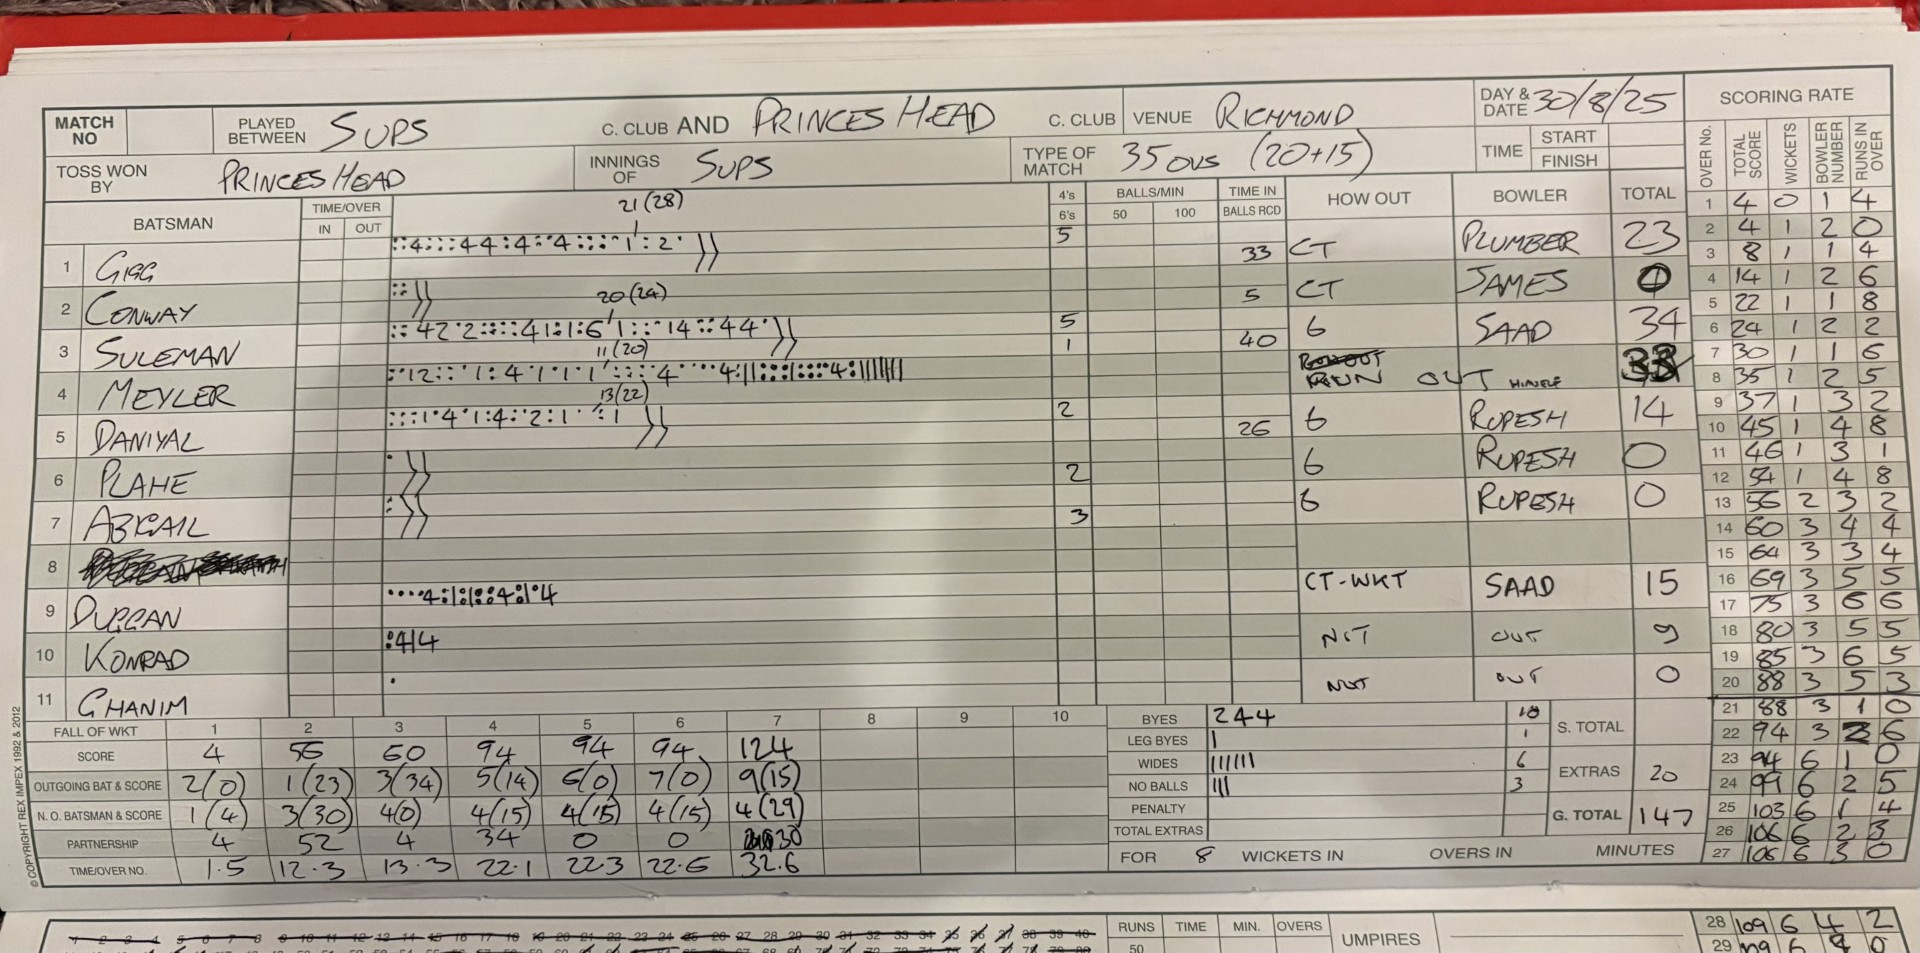 MATCH NO PLAYED BETWEEN SUPS C. CLUB AND PRINCES HEAD C. CLUB VENUE RICHMOND DAY & DATE 30/8/25 SCORING RATE
TOSS WON BY PRINCES HEAD INNINGS OF SUPS TYPE OF MATCH 35 OVS (20+15) TIME START FINISH
BATSMAN TIME/OVER IN OUT 4's 6's BALLS/MIN 50 100 TIME IN BALLS RCD HOW OUT BOWLER TOTAL
21 (28)
1 GIGG 5 33 CT PLUMBER 23
2 CONWAY 5 CT JAMES 0
20 (24)
3 SULEMAN 5 1 40 6 SAAD 34
11 (20)
4 MEYLER RUN OUT HIMSELF 33
13 (22)
5 DANIYAL 2 26 6 RUPESH 14
6 PLAHE 2 6 RUPESH 0
7 ABIGAIL 3 6 RUPESH 0
8
9 DUGGAN CT-WKT SAAD 15
10 KONRAD NOT OUT 9
11 GHANIM NOT OUT 0
FALL OF WKT 1 2 3 4 5 6 7 8 9 10
SCORE 4 56 60 94 94 94 124
OUTGOING BAT & SCORE 2(0) 1(23) 3(34) 5(14) 6(0) 7(0) 9(15)
N. O. BATSMAN & SCORE 1(4) 3(30) 4(0) 4(15) 4(15) 4(15) 4(29)
PARTNERSHIP 4 52 4 34 0 0 30
TIME/OVER NO. 1.5 12.3 13.3 22.1 22.3 22.6 32.6
BYES 244 10 S. TOTAL
LEG BYES 1
WIDES 6 EXTRAS 20
NO BALLS 3
PENALTY G. TOTAL 147
TOTAL EXTRAS
FOR 8 WICKETS IN OVERS IN MINUTES
OVER No. TOTAL SCORE WICKETS BOWLER NUMBER RUNS IN OVER
1 4 0 1 4
2 4 1 2 0
3 8 1 1 4
4 14 1 2 6
5 22 1 1 8
6 24 1 2 2
7 30 1 1 6
8 35 1 2 5
9 37 1 3 2
10 45 1 4 8
11 46 1 3 1
12 54 1 4 8
13 56 2 3 2
14 60 3 4 4
15 64 3 3 4
16 69 3 5 5
17 75 3 6 6
18 80 3 5 5
19 85 3 6 5
20 88 3 5 3
21 88 3 1 0
22 94 3 2 6
23 94 6 1 0
24 99 6 2 5
25 103 6 1 4
26 106 6 2 3
27 106 6 3 0
28 109 6 4 2
29 109 6 4 0
© COPYRIGHT REX IMPEX 1992 & 2012
RUNS TIME MIN. OVERS UMPIRES
50